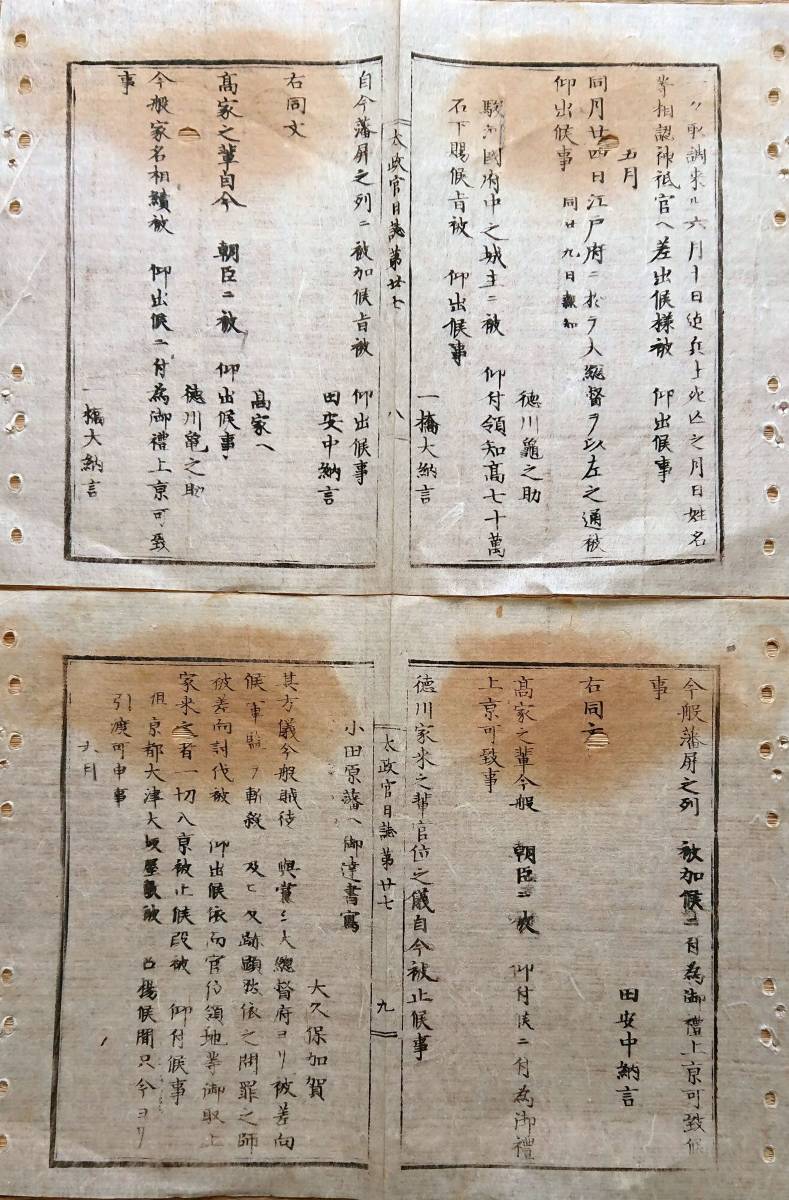 取調来ル六月十日迄
等相認神祇官ヘ差出候様被　仰出候事
五月
同月廿四日江戸府ニ於テ大総督ヲ以左之通被
仰出候事　同廿九日報知
徳川龜之助
駿河國府中之城主ニ被　仰付領知高七十萬
石下賜候旨被　仰出候事
一橋大納言
太政官日誌第廿七
八
自今藩屏之列ニ被加候旨被　仰出候事
田安中納言
右同文
高家ヘ
髙家之輩自今　朝臣ニ被　仰出候事
徳川亀之助
今般家名相續被　仰出候ニ付為御禮上京可致
事
一橋大納言
今般藩屏之列　被加候ニ付為御禮上京可致候
事
田安中納言
右同文
髙家之輩今般　朝臣ニ被　仰付候ニ付為御禮
上京可致事
徳川家来之輩官位之儀自今被止候事
太政官日誌第廿七
九
小田原藩ヘ御達書寫
大久保加賀
其方儀今般賊徒　與黨シ大總督府ヨリ被差向
候軍監ヲ斬殺　及ヒ反跡顕然依之問罪之師
被差向討伐被　仰出候依而官位領地等御取上
家来之者一切入京被止候段被　仰付候事
但京都大津大坂屋敷被　召揚候間只今ヨリ
引渡可申事
六月